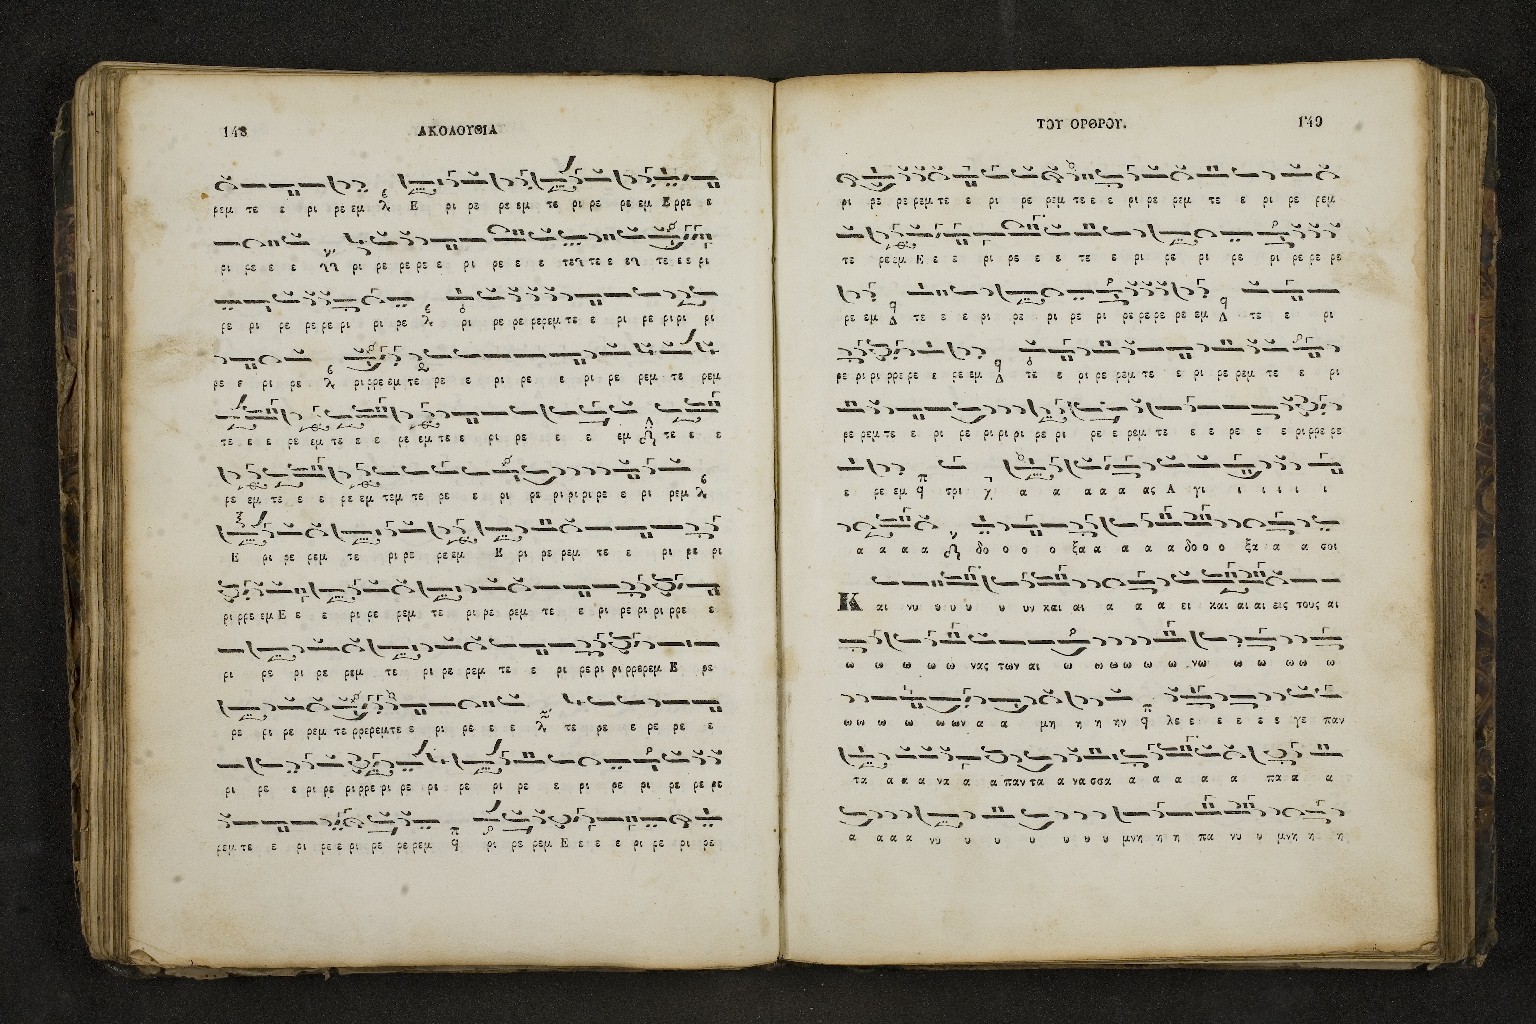 148 ΑΚΟΛΟΥΘΙΑ
ρεμ τε ε ρι ρε εμ Ε ρι ρε ρε εμ τε ρι ρε ρε εμ Ε ρρε ε
ρι ρε ε ε ρι ρε ρε ρε ε ρι ρε ε ε τε ε ρι
ρε ρι ρε ρε ρε ρι ρι ρε ρι ρε ρε ρερεμ τε ε ρι ρε ρι ρι ρι
ρε ε ρι ρε ρι ρρε εμ τε ρε ε ρι ρε ε ρι ρε ρεμ τε ρεμ
τε ε ε ρε εμ τε ε ε ρε εμ τε ε ρι ρε ε ε εμ τε ε ε
ρε εμ τε ε ε ρε εμ τεμ τε ρε ε ρι ρε ρι ρι ρι ρε ε ρι ρεμ
Ε ρι ρε ρεμ τε ρι ρε ρε εμ Ε ρι ρε ρεμ τε ε ρι ρε ρι
ρι ρρε εμ Ε ε ε ρι ρε ρεμ τε ρι ρε ρεμ τε ε ρι ρε ρι ρι ρρε ε
ρι ρε ρι ρε ρεμ τε ρι ρε ρεμ τε ε ρι ρε ρι ρι ρρερεμ Ε ρε
ρε ρι ρε ρεμ τε ρρερεμτε ε ρι ρε ε ε τε ρε ε ρε ρε ε
ρι ρε ε ρι ρε ρι ρρε ρι ρε ρι ρε ρι ρε ε ρι ρε ρι ρε ρε ρε
ρεμ τε ε ρι ρε ε ρι ρε ρε ρεμ ρι ρε ρεμ Ε ε ε ε ρι ρε ρι ρε
ΤΟΥ ΟΡΘΡΟΥ. 149
ρι ρε ρε ρεμ τε ε ρι ρε ρεμ τε ε ε ρι ρε ρεμ τε ε ρι ρε ρεμ
τε ρε εμ Ε ε ε ρι ρε ε ε τε ε ρι ρε ρι ρε ρι ρε ρε ρε
ρε εμ τε ε ε ρι ρε ρι ρε ρι ρε ρε ρε ρε εμ τε ε ρι
ρε ρι ρι ρρε ρε ε ρε εμ τε ε ρι ρε ρεμ τε ε ρι ρε ρεμ τε ε ρι
ρε ρεμ τε ε ρι ρε ρι ρι ρι ρε ρι ρε ε ρεμ τε ε ε ρε ε ε ρι ρρε ρε
ε ρε εμ τρι α α α α α ας Α γι ι ι ι ι ι
α α α α δο ο ο ο ξα α α α α α δο ο ο ξα α α σοι
Και νυ υ υ υ υ υν και αι α α α ει και αι αι εις τους αι
ω ω ω ω ω νας των αι ω ω ω ω ω ω νω ω ω ω ω ω
ω ω ω ω ω ων α α μη η η ην λε ε ε ε ε ε γε παν
τα α α α να α α παν τα α να σσα α α α α α πα α α
α α α α νυ υ υ υ υ υ υ μνη η η πα νυ υ μνη η η